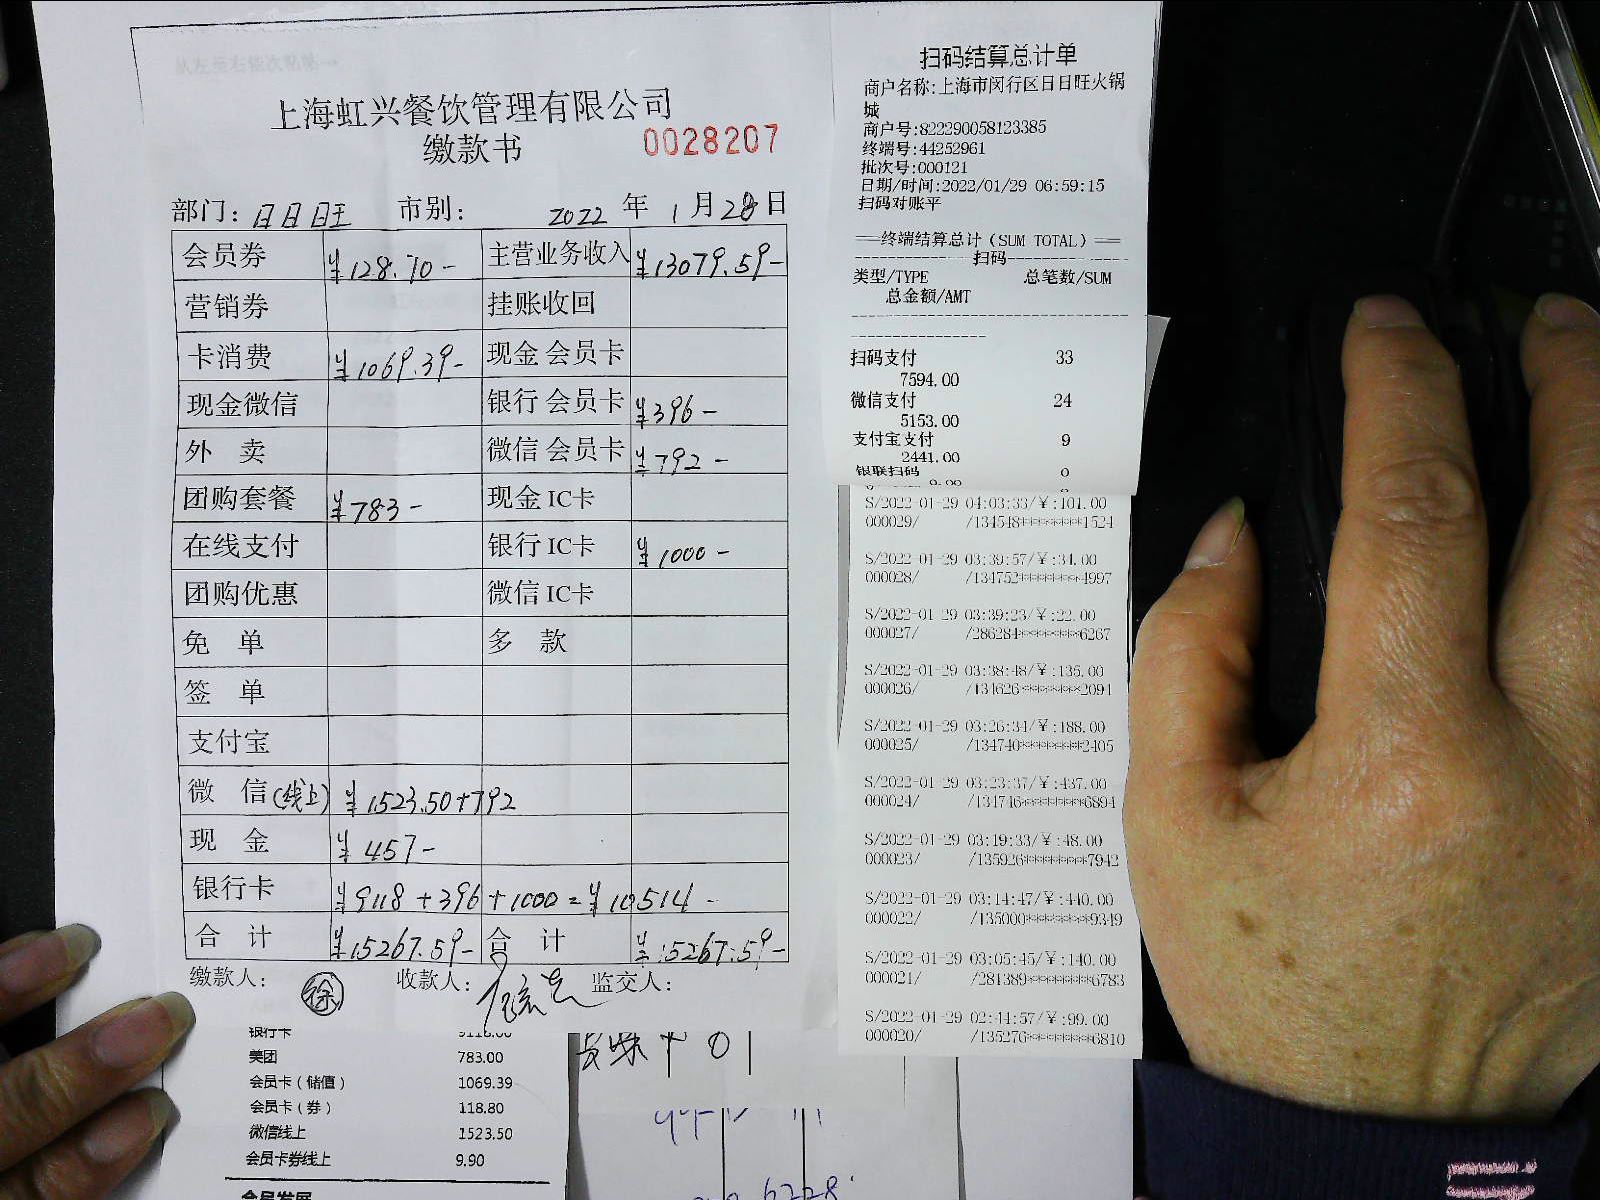 上海虹兴餐饮管理有限公司
缴款书
0028207
部门: 日日旺 市别: 2022 年 1 月 28 日
会员券 ¥128.70- 主营业务收入 ¥13079.59-
营销券 挂账收回
卡消费 ¥1069.39- 现金 会员卡
现金微信 银行 会员卡 ¥396-
外 卖 微信 会员卡 ¥792-
团购套餐 ¥783- 现金 IC卡
在线支付 银行 IC卡 ¥1000-
团购优惠 微信 IC卡
免 单 多 款
签 单
支付宝
微 信(线上) ¥1523.50+792
现 金 ¥457-
银行卡 ¥9118+396+1000=¥10514-
合 计 ¥15267.59- 合 计 ¥15267.59-
缴款人: 徐 收款人: 监交人:
银行卡 9118.00
美团 783.00
会员卡（储值） 1069.39
会员卡（券） 118.80
微信线上 1523.50
会员卡券线上 9.90
会员发展
扫码结算总计单
商户名称:上海市闵行区日日旺火锅
城
商户号:822290058123385
终端号:44252961
批次号:000121
日期/时间:2022/01/29 06:59:15
扫码对账平
==终端结算总计(SUM TOTAL)==
扫码
类型/TYPE 总笔数/SUM
总金额/AMT
扫码支付 33
7594.00
微信支付 24
5153.00
支付宝支付 9
2441.00
银联扫码 0
S/2022-01-29 04:03:33/¥:101.00
000029/ /134548********1524
S/2022-01-29 03:39:57/¥:34.00
000028/ /134752********4997
S/2022-01-29 03:39:23/¥:22.00
000027/ /286284********6267
S/2022-01-29 03:38:48/¥:135.00
000026/ /134626********2091
S/2022-01-29 03:26:34/¥:188.00
000025/ /134740********2405
S/2022-01-29 03:23:37/¥:437.00
000024/ /134746********6894
S/2022-01-29 03:19:33/¥:48.00
000023/ /135926********7942
S/2022-01-29 03:14:47/¥:440.00
000022/ /135000********9349
S/2022-01-29 03:05:45/¥:140.00
000021/ /281389********6783
S/2022-01-29 02:44:57/¥:99.00
000020/ /135276********6810